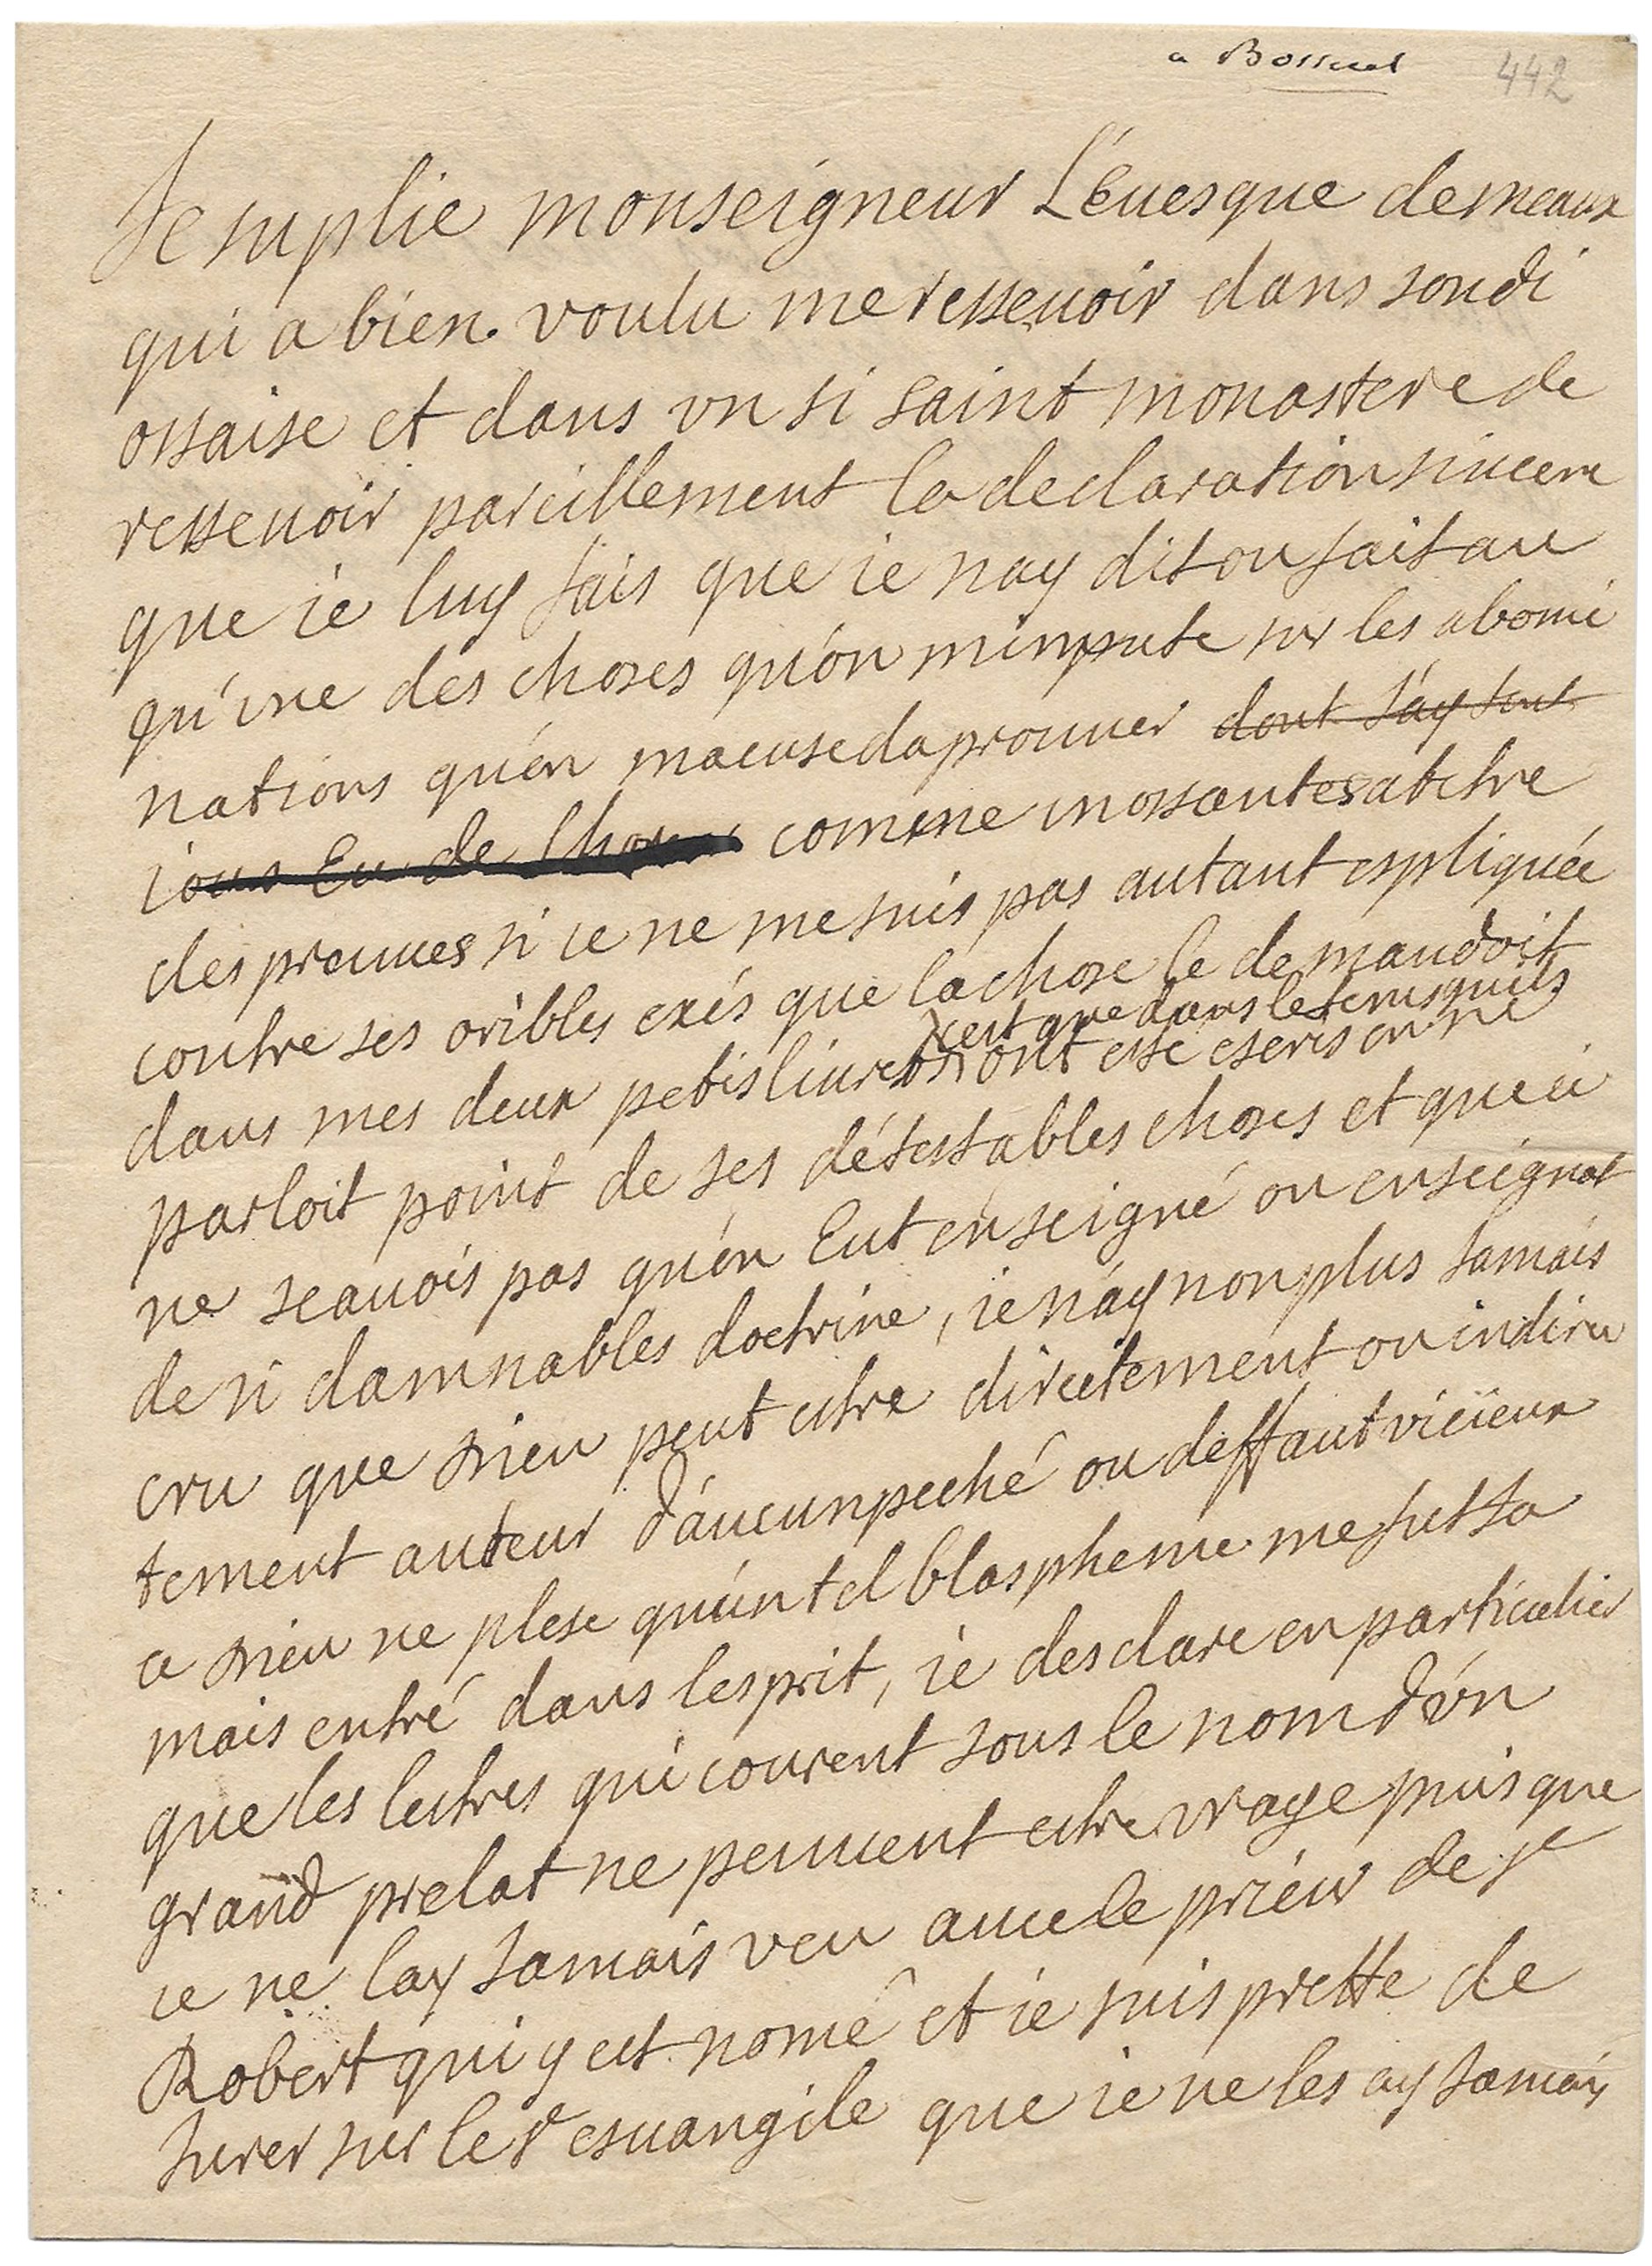 a Bossuet 442
Je suplie monseigneur L'éuesque de meaux
qui a bien voulu me ressenoir dans son di
ossaise et dans un si saint monastere de
ressenoir pareillement la declaration sincere
que ie luy fais que ie nay dit ou fait au
qu'une des choses qu'on m'impute sur les abomi
nations qu'on macuse daprouuer dont j'ay tout
iours Eu de l'horreur comme inossantes a titre
des preuues si ie ne me suis pas autant espliquée
contre ses oribles exés que la chose le demandoit
dans mes deux petis liurets cest que dans le tems quils
ont esté escris on ne
parloit point de ses détestables choses et que ie
ne scauois pas qu'on Eut enseigné ou enseignat
de si damnables doctrine, ie n'ay non plus jamais
cru que dieu peut estre directement ou indirec
tement auteur d'aucun peché ou deffaut vicieux
a dieu ne plese qu'un tel blaspheme me fut ja
mais entré dans lesprit, ie desclare en particulier
que les lettres qui courent sous le nom d'un
grand prelat ne peuuent estre vraye puis que
ie ne lay jamais veu auec le prieur de st
Robert qui y est nomé et ie suis prette de
jurer sur le st esuangile que ie ne les ay jamais